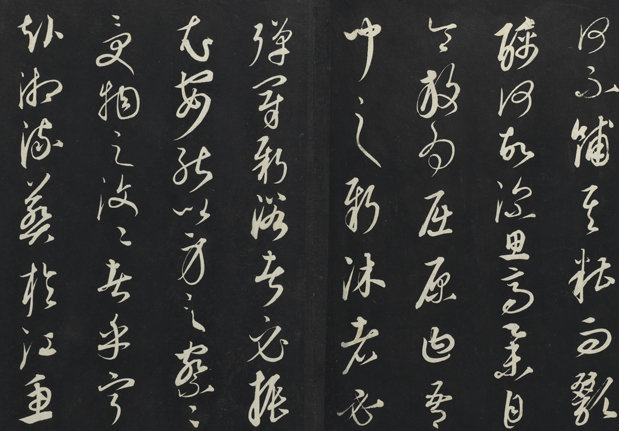 何不餔其糟而歠
醨何故深思高舉自
令放為屈原曰吾
聞之新沐者必
彈冠新浴者必振
衣安能以身之察〻
受物之汶〻者乎寧
赴湘流葬於江魚